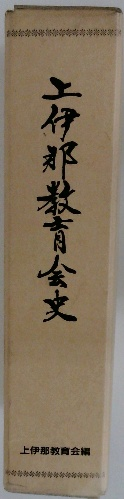 上伊那教育会史
上伊那教育会編